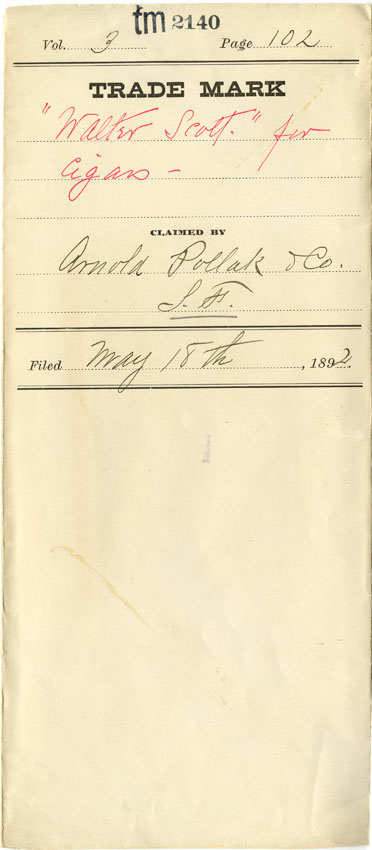 tm 2140
Vol. 3 Page 102
TRADE MARK
"Walter Scott." for
Cigars -
CLAIMED BY
Arnold Pollak & Co.
S. F.
Filed May 18th, 1892.